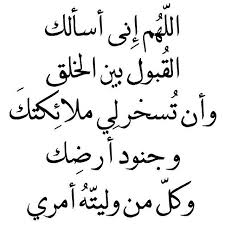 اللّهُم إِنى أسألك
القُبول بين الخلق
وأن تُسخر لِي ملائِكتكَ
و جنود أرضِك
وكلّ من وليتّهُ أمري